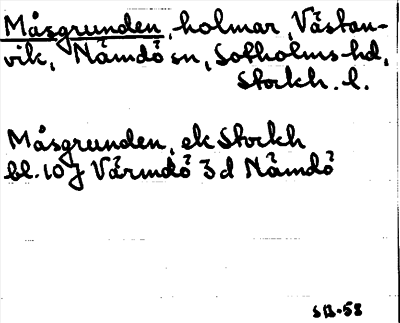 Måsgrunden, holmar, Västan-
vik, Nämdö sn, Sotholms hd,
Stockh. l.
Måsgrunden, ek Stockh
bl. 10 J Värmdö 3 d Nämdö
SB-58